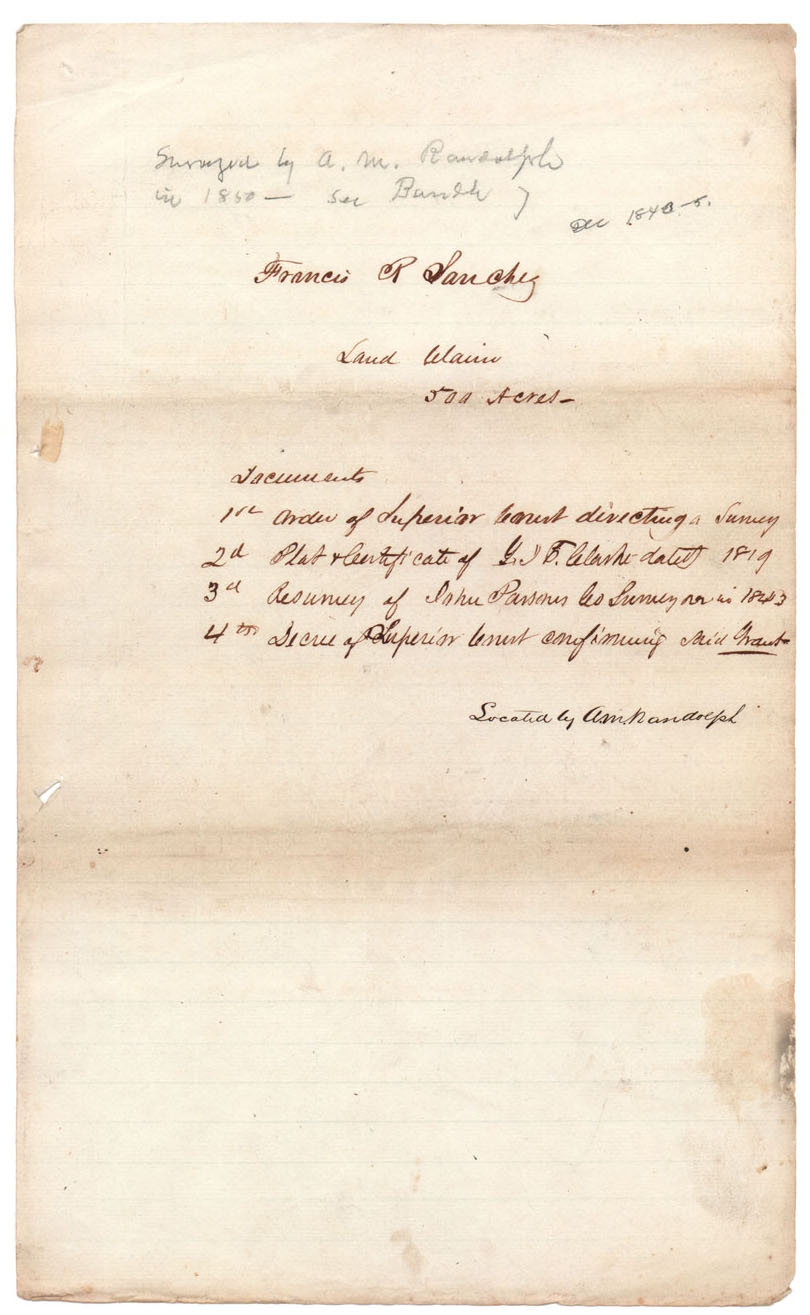 Surveyed by A. M. Randolph
in 1850 — See Bundle 7
Dec 1843-5.
Francis R Sanchez
Land Claim
500 Acres—
Documents
1st Order of Superior Court directing a Survey
2d Plat & Certificate of G. I. F. Clarke dated 1819
3d Resurvey of John Parsons Co Surveyor in 1843
4th Decree of Superior Court confirming said Grant
Located by A M. Randolph